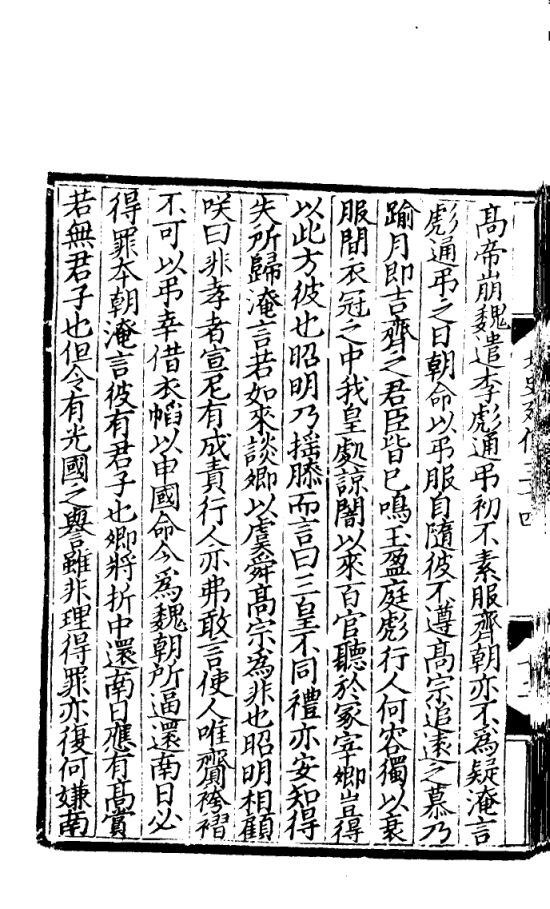 高帝崩魏遣李彪通弔初不素服齊朝亦不爲疑淹言
彪通弔之日朝命以弔服自隨彼不遵高宗追遠之慕乃
踰月即吉齊之君臣皆已鳴玉盈庭彪行人何容獨以衰
服間衣冠之中我皇處諒闇以來百官聽於冢宰卿豈得
以此方彼也昭明乃摇膝而言曰三皇不同禮亦安知得
失所歸淹言若如來談卿以虞舜髙宗爲非也昭明相顧
咲曰非孝者宣尼有成責行人亦弗敢言使人唯齎袴褶
不可以弔幸借衣㡊以申國命今爲魏朝所逼還南日必
得罪本朝淹言彼有君子也卿將折中還南日應有髙賞
若無君子也但令有光國之譽雖非理得罪亦復何嫌南
史列傳三十四